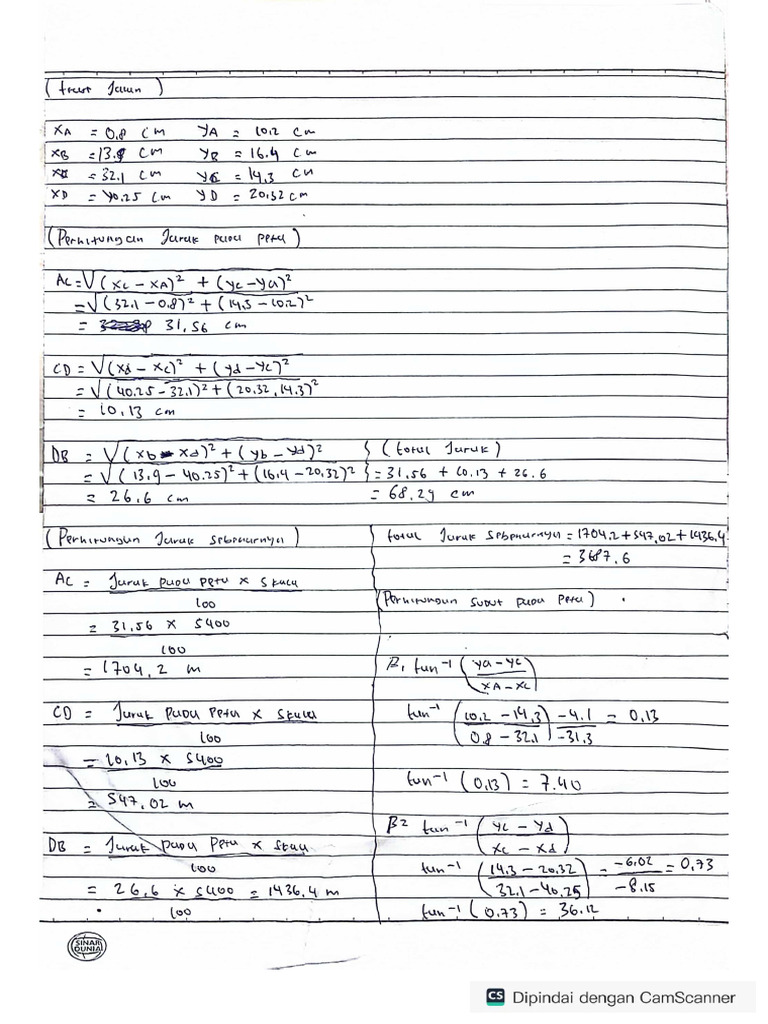 (trase Jalan)
XA = 0,8 cm YA = 10,2 cm
XB = 13,9 cm YB = 16,4 cm
XC = 32,1 cm YC = 14,3 cm
XD = 40,25 cm YD = 20,32 cm
(Perhitungan Jarak pada peta)
AC = √(xc - xA)² + (yc - ya)²
= √(32.1 - 0.8)² + (14.3 - 10.2)²
= 31,56 cm
CD = √(xd - xc)² + (yd - yc)²
= √(40.25 - 32.1)² + (20.32, 14.3)²
= 10,13 cm
DB = √(xb - xd)² + (yb - yd)²
= √(13.9 - 40.25)² + (16.4 - 20.32)²
= 26,6 cm
(total Jarak)
= 31,56 + 10,13 + 26.6
= 68.29 cm
(Perhitungan Jarak sebenarnya)
AC = Jarak pada peta × skala
100
= 31,56 × 5400
100
= 1704,2 m
CD = Jarak pada peta × skala
100
= 10,13 × 5400
100
= 547,02 m
DB = Jarak pada peta × skala
100
= 26,6 × 5400 = 1436,4 m
100
total Jarak sebenarnya = 1704,2 + 547,02 + 1436,4
= 3687,6
(Perhitungan sudut pada peta)
β1 tan⁻¹ (ya - yc)
xA - xc
tan⁻¹ (10.2 - 14,3) -4.1 = 0,13
0.8 - 32.1 -31.3
tan⁻¹ (0.13) = 7.40
β2 tan⁻¹ (yc - yd)
xc - xd
tan⁻¹ (14.3 - 20.32) = -6.02 = 0,73
32.1 - 40.25 -8.15
tan⁻¹ (0.73) = 36.12
SINAR
DUNIA
CS Dipindai dengan CamScanner